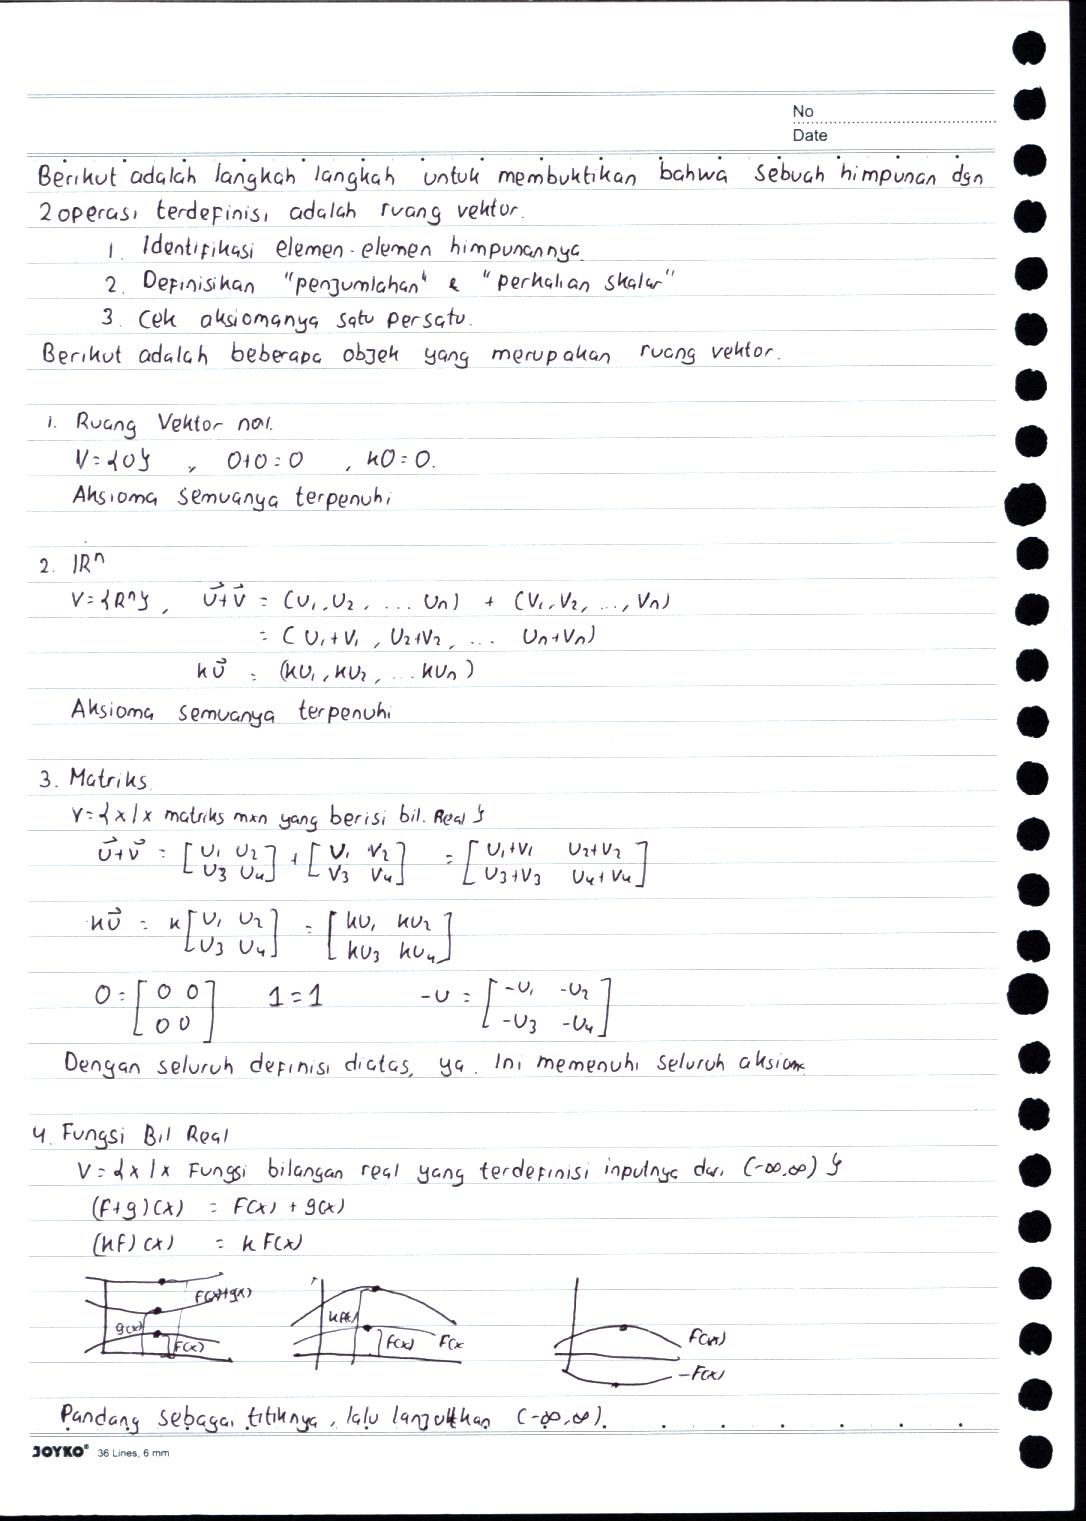 No
Date
Berikut adalah langkah langkah untuk membuktikan bahwa sebuah himpunan dgn
2 operasi terdefinisi adalah ruang vektor.
1. Identifikasi elemen-elemen himpunannya
2. Definisikan "penjumlahan" & "perkalian skalar"
3. Cek aksiomanya satu persatu.
Berikut adalah beberapa objek yang merupakan ruang vektor.
1. Ruang Vektor nol.
V={0} , 0+0=0 , k0=0.
Aksioma semuanya terpenuhi
2. ℝⁿ
V={Rⁿ}, u⃗+v⃗ = (u₁,u₂, ... uₙ) + (v₁,v₂, ..., vₙ)
= (u₁+v₁, u₂+v₂, ... uₙ+vₙ)
ku⃗ = (ku₁, ku₂, ... kuₙ)
Aksioma semuanya terpenuhi
3. Matriks.
V={x|x matriks mxn yang berisi bil. Real}
u⃗+v⃗ = [u₁ u₂ u₃ u₄] + [v₁ v₂ v₃ v₄] = [u₁+v₁ u₂+v₂ u₃+v₃ u₄+v₄]
ku⃗ = k[u₁ u₂ u₃ u₄] = [ku₁ ku₂ ku₃ ku₄]
0=[0 0 0 0] 1=1 -u = [-u₁ -u₂ -u₃ -u₄]
Dengan seluruh definisi diatas, ya. Ini memenuhi seluruh aksiom
4. Fungsi Bil Real
V={x|x Fungsi bilangan real yang terdefinisi inputnya dari (-∞,∞)}
(f+g)(x) = F(x) + g(x)
(kf)(x) = k F(x)
F(x)+g(x)
g(x)
F(x)
kf(x)
F(x)
F(x
F(x)
-F(x)
Pandang sebagai titiknya, lalu lanjutkan (-∞,∞).
JOYKO® 36 Lines, 6 mm